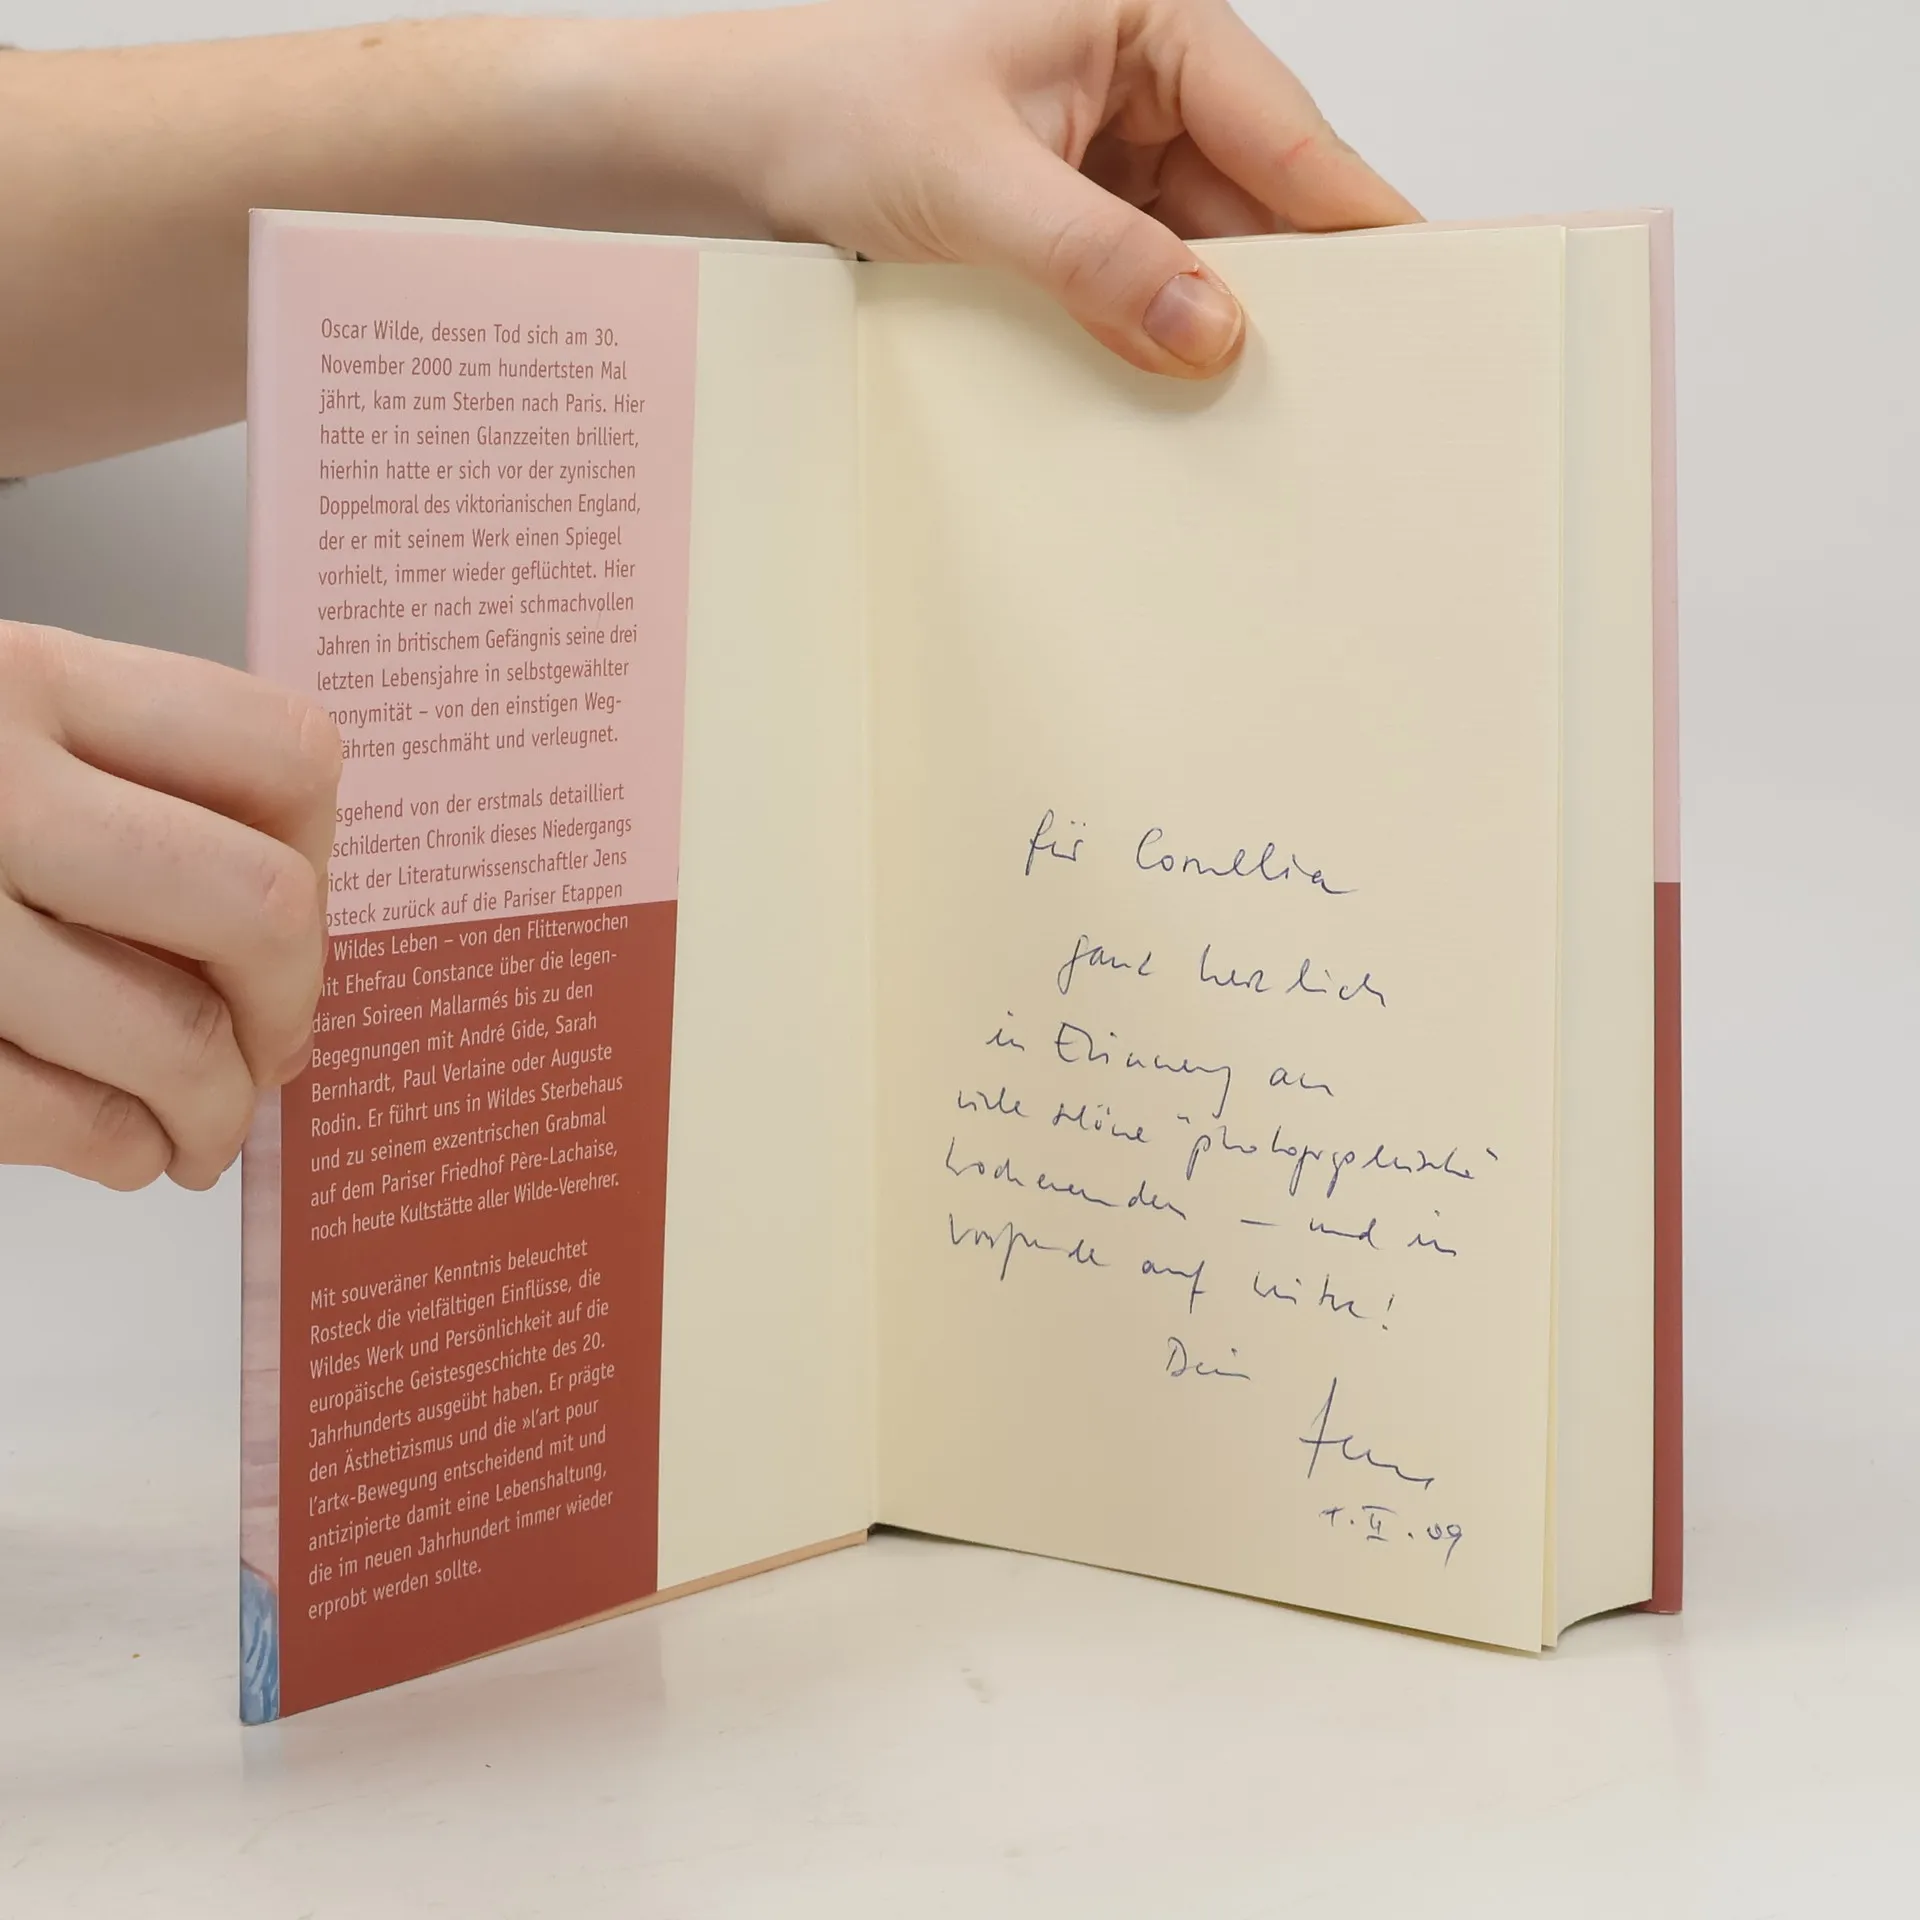 Oscar Wilde, dessen Tod sich am 30.
November 2000 zum hundertsten Mal
jährt, kam zum Sterben nach Paris. Hier
hatte er in seinen Glanzzeiten brilliert,
hierhin hatte er sich vor der zynischen
Doppelmoral des viktorianischen England,
der er mit seinem Werk einen Spiegel
vorhielt, immer wieder geflüchtet. Hier
verbrachte er nach zwei schmachvollen
Jahren in britischem Gefängnis seine drei
letzten Lebensjahre in selbstgewählter
nonymität – von den einstigen Weg-
ährten geschmäht und verleugnet.
sgehend von der erstmals detailliert
schilderten Chronik dieses Niedergangs
ickt der Literaturwissenschaftler Jens
osteck zurück auf die Pariser Etappen
Wildes Leben – von den Flitterwochen
it Ehefrau Constance über die legen-
dären Soireen Mallarmés bis zu den
Begegnungen mit André Gide, Sarah
Bernhardt, Paul Verlaine oder Auguste
Rodin. Er führt uns in Wildes Sterbehaus
und zu seinem exzentrischen Grabmal
auf dem Pariser Friedhof Père-Lachaise,
noch heute Kultstätte aller Wilde-Verehrer.
Mit souveräner Kenntnis beleuchtet
Rosteck die vielfältigen Einflüsse, die
Wildes Werk und Persönlichkeit auf die
europäische Geistesgeschichte des 20.
Jahrhunderts ausgeübt haben. Er prägte
den Ästhetizismus und die »l'art pour
l'art«-Bewegung entscheidend mit und
antizipierte damit eine Lebenshaltung,
die im neuen Jahrhundert immer wieder
erprobt werden sollte.
für Cornelia
ganz herzlich
in Erinnerung an
viele schöne "photographische"
Wochenenden – und in
Vorfreude auf weitere!
Dein
Jens
1. II. 09